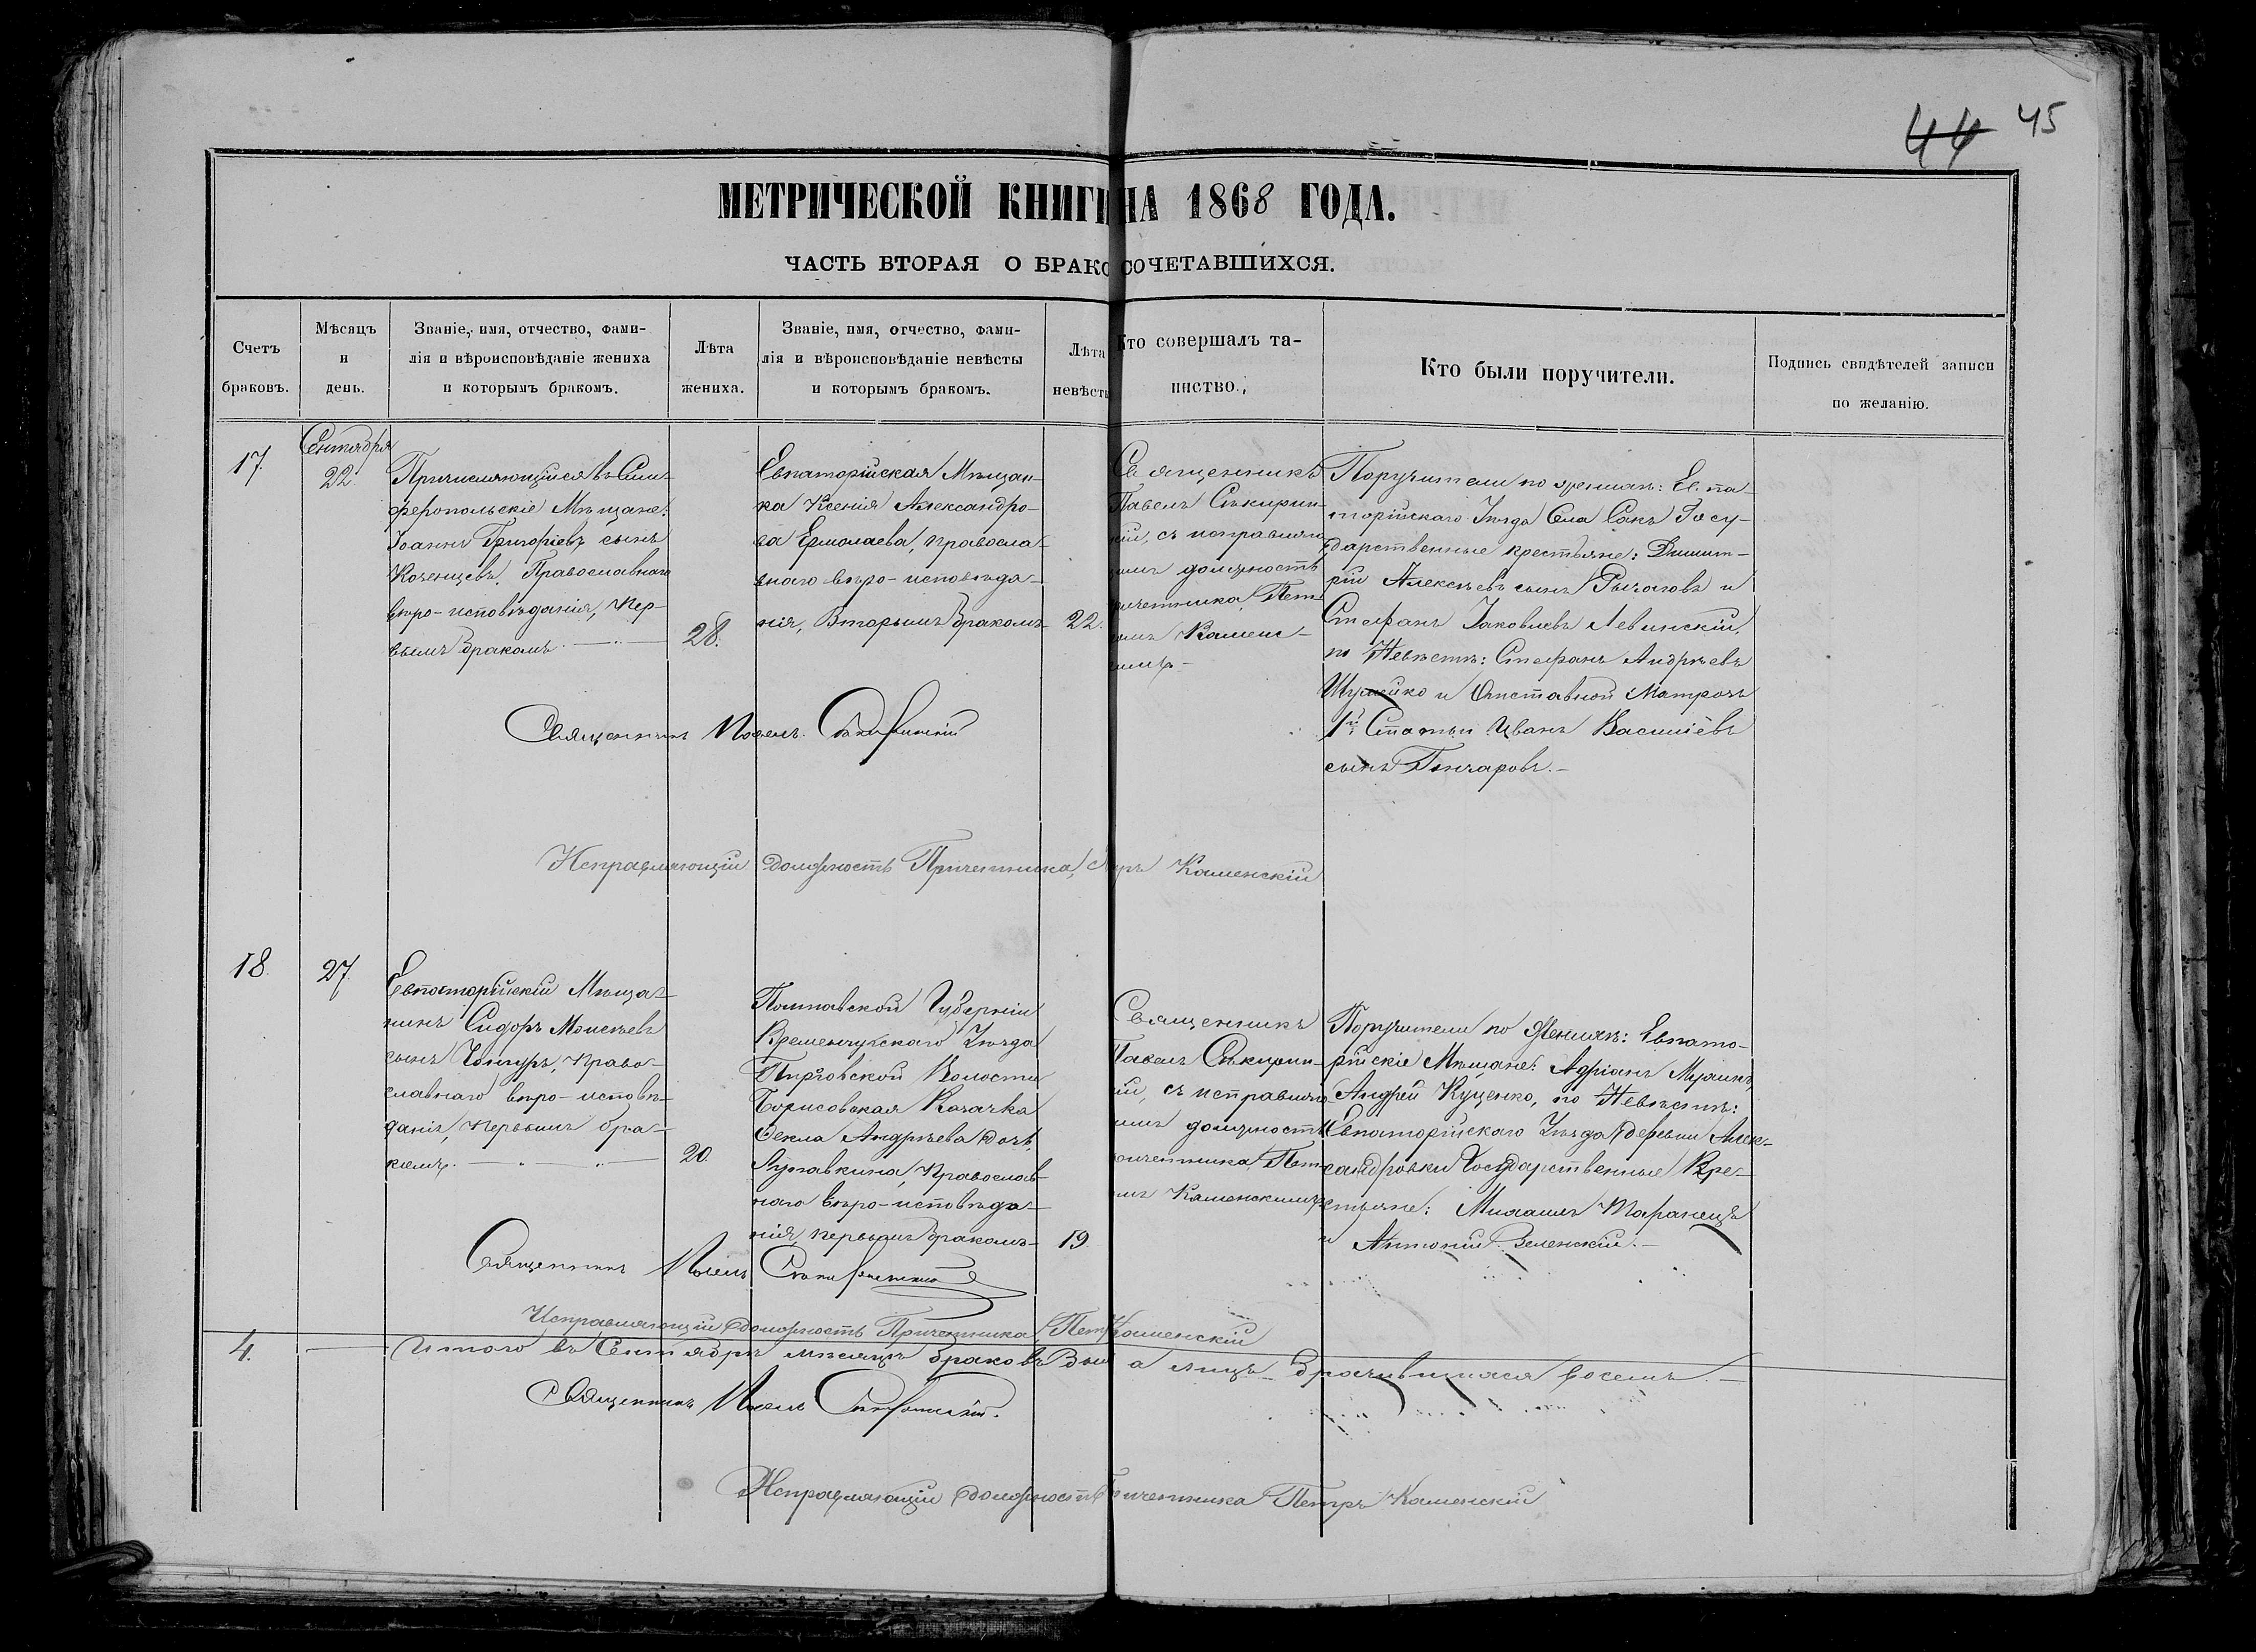 44 45
МЕТРИЧЕСКОЙ КНИГИ НА 1868 ГОДА.
ЧАСТЬ ВТОРАЯ О БРАКОСОЧЕТАВШИХСЯ.
Счетъ
браковъ.
Мѣсяцъ
и
день.
Званіе, имя, отчество, фами-
лія и вѣроисповѣданіе жениха
и которымъ бракомъ.
Лѣта
жениха.
Званіе, имя, отчество, фами-
лія и вѣроисповѣданіе невѣсты
и которымъ бракомъ.
Лѣта
невѣсты
Кто совершалъ та-
инство.
Кто были поручители.
Подпись свидѣтелей записи
по желанію.
17.
Сентября
22.
Причисляющійся въ Сим-
феропольскіе Мѣщане:
Іоаннъ Григоріевъ сынъ
Православнаго
вѣро-исповѣданія, пер-
вымъ бракомъ.
28.
Евпаторійская Мѣщан-
ка Ксенія Александро-
ва Ермолаева, правосла-
внаго вѣро-исповѣда-
нія, Вторымъ бракомъ
22.
Священникъ
Павелъ Сѣкирин-
кій, съ исправляю
щимъ должность
ричетника, Пет-
ромъ Каменс-
кимъ
Поручители по женихѣ: Евпа-
торійскаго Уѣзда Села Сакъ Госу-
дарственные крестьяне: Димит-
рій Алексѣевъ сынъ Рычаговъ и
Стефанъ Іаковлевъ Левинскій,
по Невѣстѣ: Стефанъ Андрѣевъ
и Отставной Матрозъ
1й Статьи Иванъ Василіевъ
сынъ Гончаровъ.
Священникъ Павелъ Сѣкиринскій
Исправляющій должность Причетника, Петръ Каменскій
18.
27.
Евпаторійскій Мѣща-
нинъ Сидоръ Моисѣевъ
сынъ право-
славнаго вѣро-исповѣ-
данія, первымъ бра-
комъ.
20.
Полтавской Губерніи
Кременчугскаго Уѣзда
Волости
Борисовская Козачка
Ѳекла Андрѣева дочь,
Православ-
наго вѣро-исповѣда-
нія, первымъ бракомъ
19.
Священникъ
Павелъ Сѣкирин-
ій, съ исправляю
щимъ должность
ричетника, Пет-
омъ Каменскимъ
Поручители по Женихѣ: Евпато-
рійскіе Мѣщане: Адріанъ
Андрей Куценко, по Невѣстѣ:
Евпаторійскаго Уѣзда деревни Алек-
сандровки Государственные Кре-
стьяне: Михаилъ Таранецъ
и Антоній Зеленскій.
Священникъ Павелъ Сѣкиринскій
Исправляющій должность Причетника, Петръ Каменскій
4.
Итого въ Сентябрѣ мѣсяцѣ браковъ было а лицъ брачившихся восемь.
Священникъ Павелъ Сѣкиринскій.
Исправляющій должность Причетника Петръ Каменскій